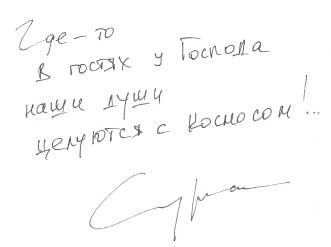 Где-то
в гостях у Господа
наши души
целуются с Космосом!..